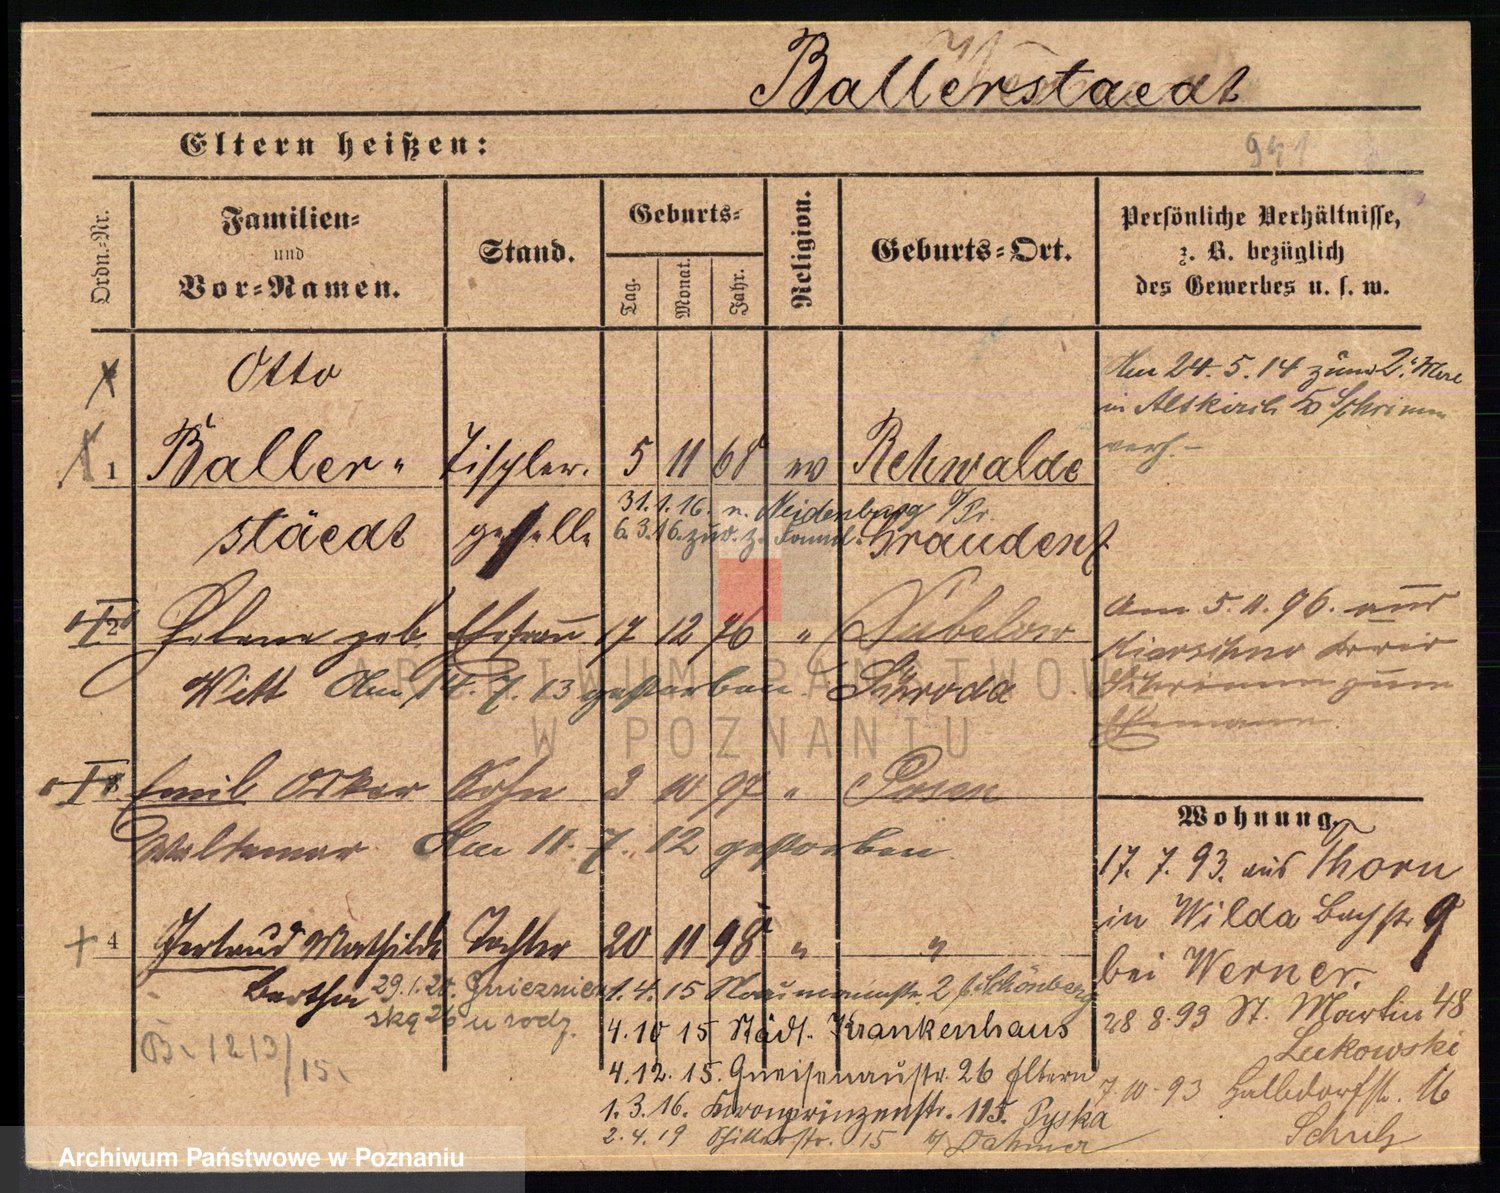 Ballerstaedt
Eltern heißen:
941
Ordn.-Nr.
Familien-
und
Vor-Namen.
Stand.
Geburts-
Tag.
Monat.
Jahr.
Religion.
Geburts-Ort.
Persönliche Verhältnisse,
z. B. bezüglich
des Gewerbes u. s. w.
Otto
1 Baller- Tischler- 5 11 68 ev Rehwalde
staedt geselle Graudenz
31.1.16. n. Neidenburg O/Pr.
6.3.16. zur. z. Famil.
Am 24.5.14 zum 2. Male
in Altkirch Schrimm
verh. -
2 Helene geb. Ehefrau 17 12 76 " Subelow
Witt Am 14.7.13 gestorben Schroda
Am 5.11.96. aus
Schrimm zum
Ehemann.
3 Emil Oskar Sohn 2 10 97 " Posen
Waldemar Am 11.7.12 gestorben
4 Gertrud Mathilde Tochter 20 11 98 " "
Bertha
29.1.20. Gnieznien
ską 26 u rodz.
B. 1213/15.
1.4.15 Naumannstr. 2 b. Schönberg
4.10 15 Städt. Krankenhaus
4.12.15. Gneisenaustr. 26 Eltern
1.3.16. Kronprinzenstr. 115. Pyska
2.4.19 Schillerstr. 15 b/ Dahmer
Wohnung.
17.7.93. aus Thorn
in Wilda Bachstr 9
bei Werner.
28 8.93 St. Martin 48
Lukowski
7 10.93 Halbdorfstr. 16
Schulz
ARCHIWUM PAŃSTWOWE
W POZNANIU
Archiwum Państwowe w Poznaniu